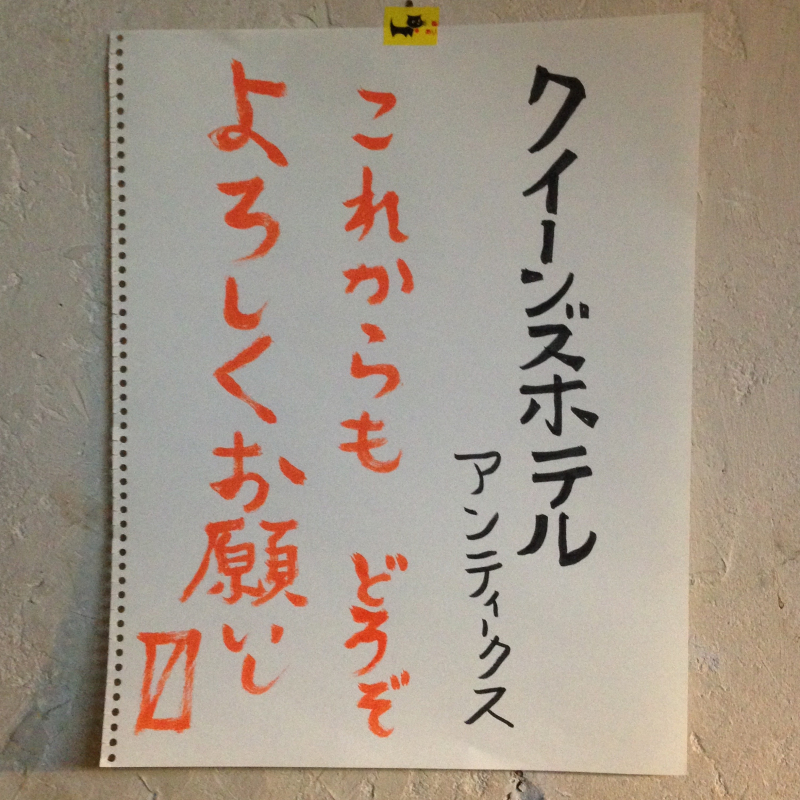 クイーンズホテル
アンティークス
これからも どうぞ
よろしくお願いし
〼